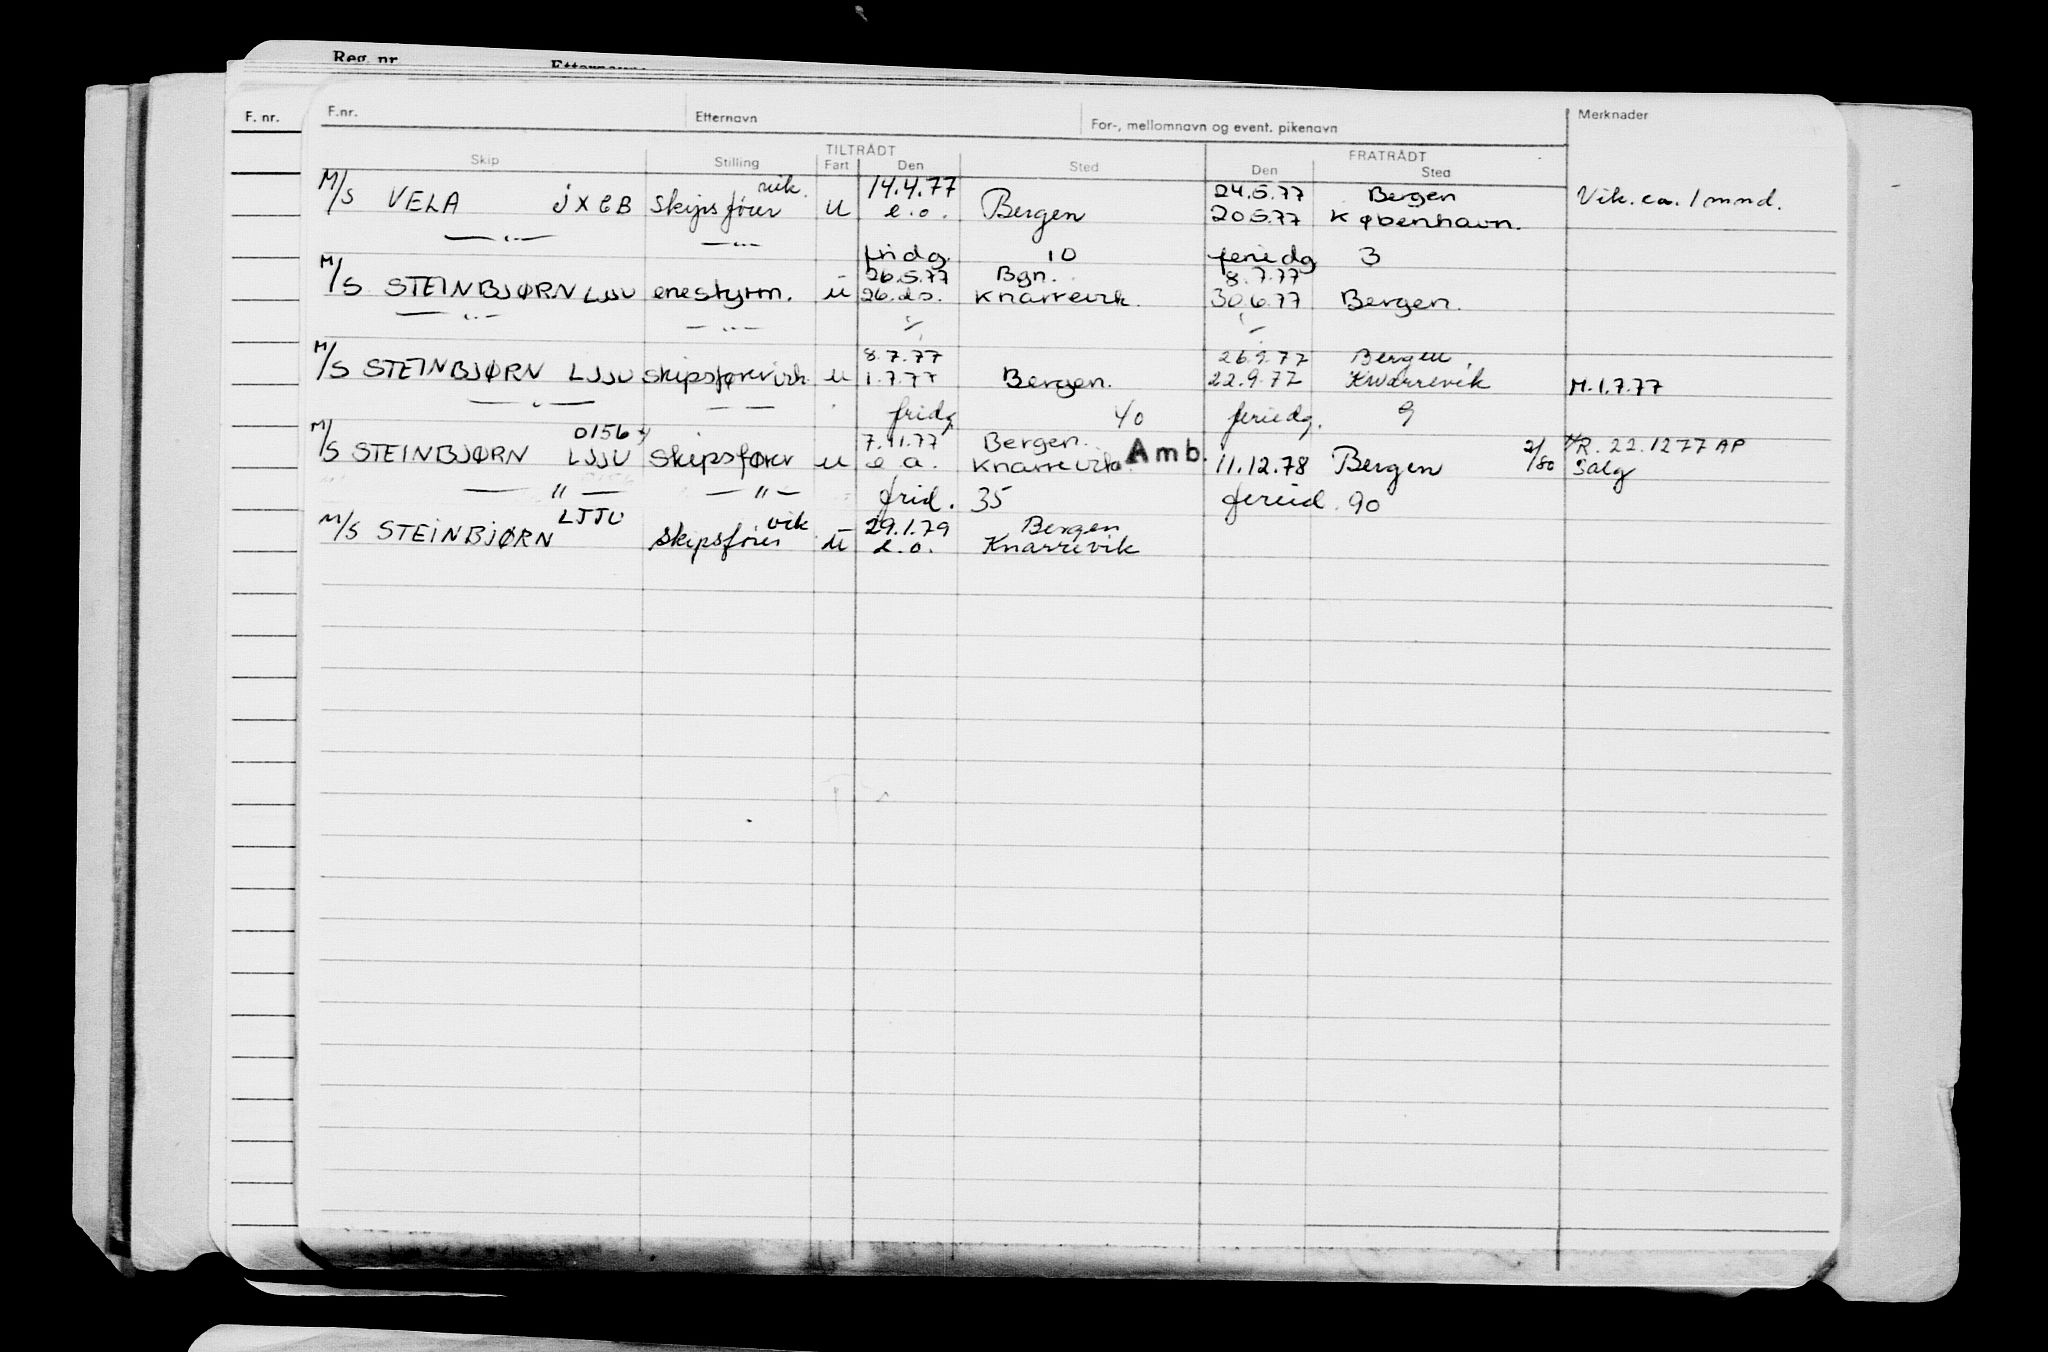 Reg. nr. Etternavn
F. nr.
F.nr. Etternavn For-, mellomnavn og event. pikenavn Merknader
TILTRÅDT FRATRÅDT
Skip Stilling Fart Den Sted Den Sted
vik. 14.4.77 24.5.77 Bergen
M/S VELA JXCB Skipsfører u e.o. Bergen 20.5.77 København. Vik. ca. 1 mnd.
— " — — " — fridg. 10 feriedg 3
26.5.77 Bgn. 8.7.77
M/S STEINBJØRN LJJU enestyrm. u 26. ds. Knarrevik. 30.6.77 Bergen.
— " — — " —
8.7.77 26.9.77 Bergen.
M/S STEINBJØRN LJJU skipsfører vik. u 1.7.77 Bergen. 22.9.77 Knarrevik M.1.7.77
— " — — — fridg 40 feriedg. 9
0156 7.11.77 Bergen. Amb. R. 22.12 77 AP
M/S STEINBJØRN LJJU Skipsfører u e.o. Knarrevik 11.12.78 Bergen 2/80 Salg
— " — — " — frid. 35 feried. 90
LJJU vik 29.1.79 Bergen
M/S STEINBJØRN skipsfører u e.o. Knarrevik